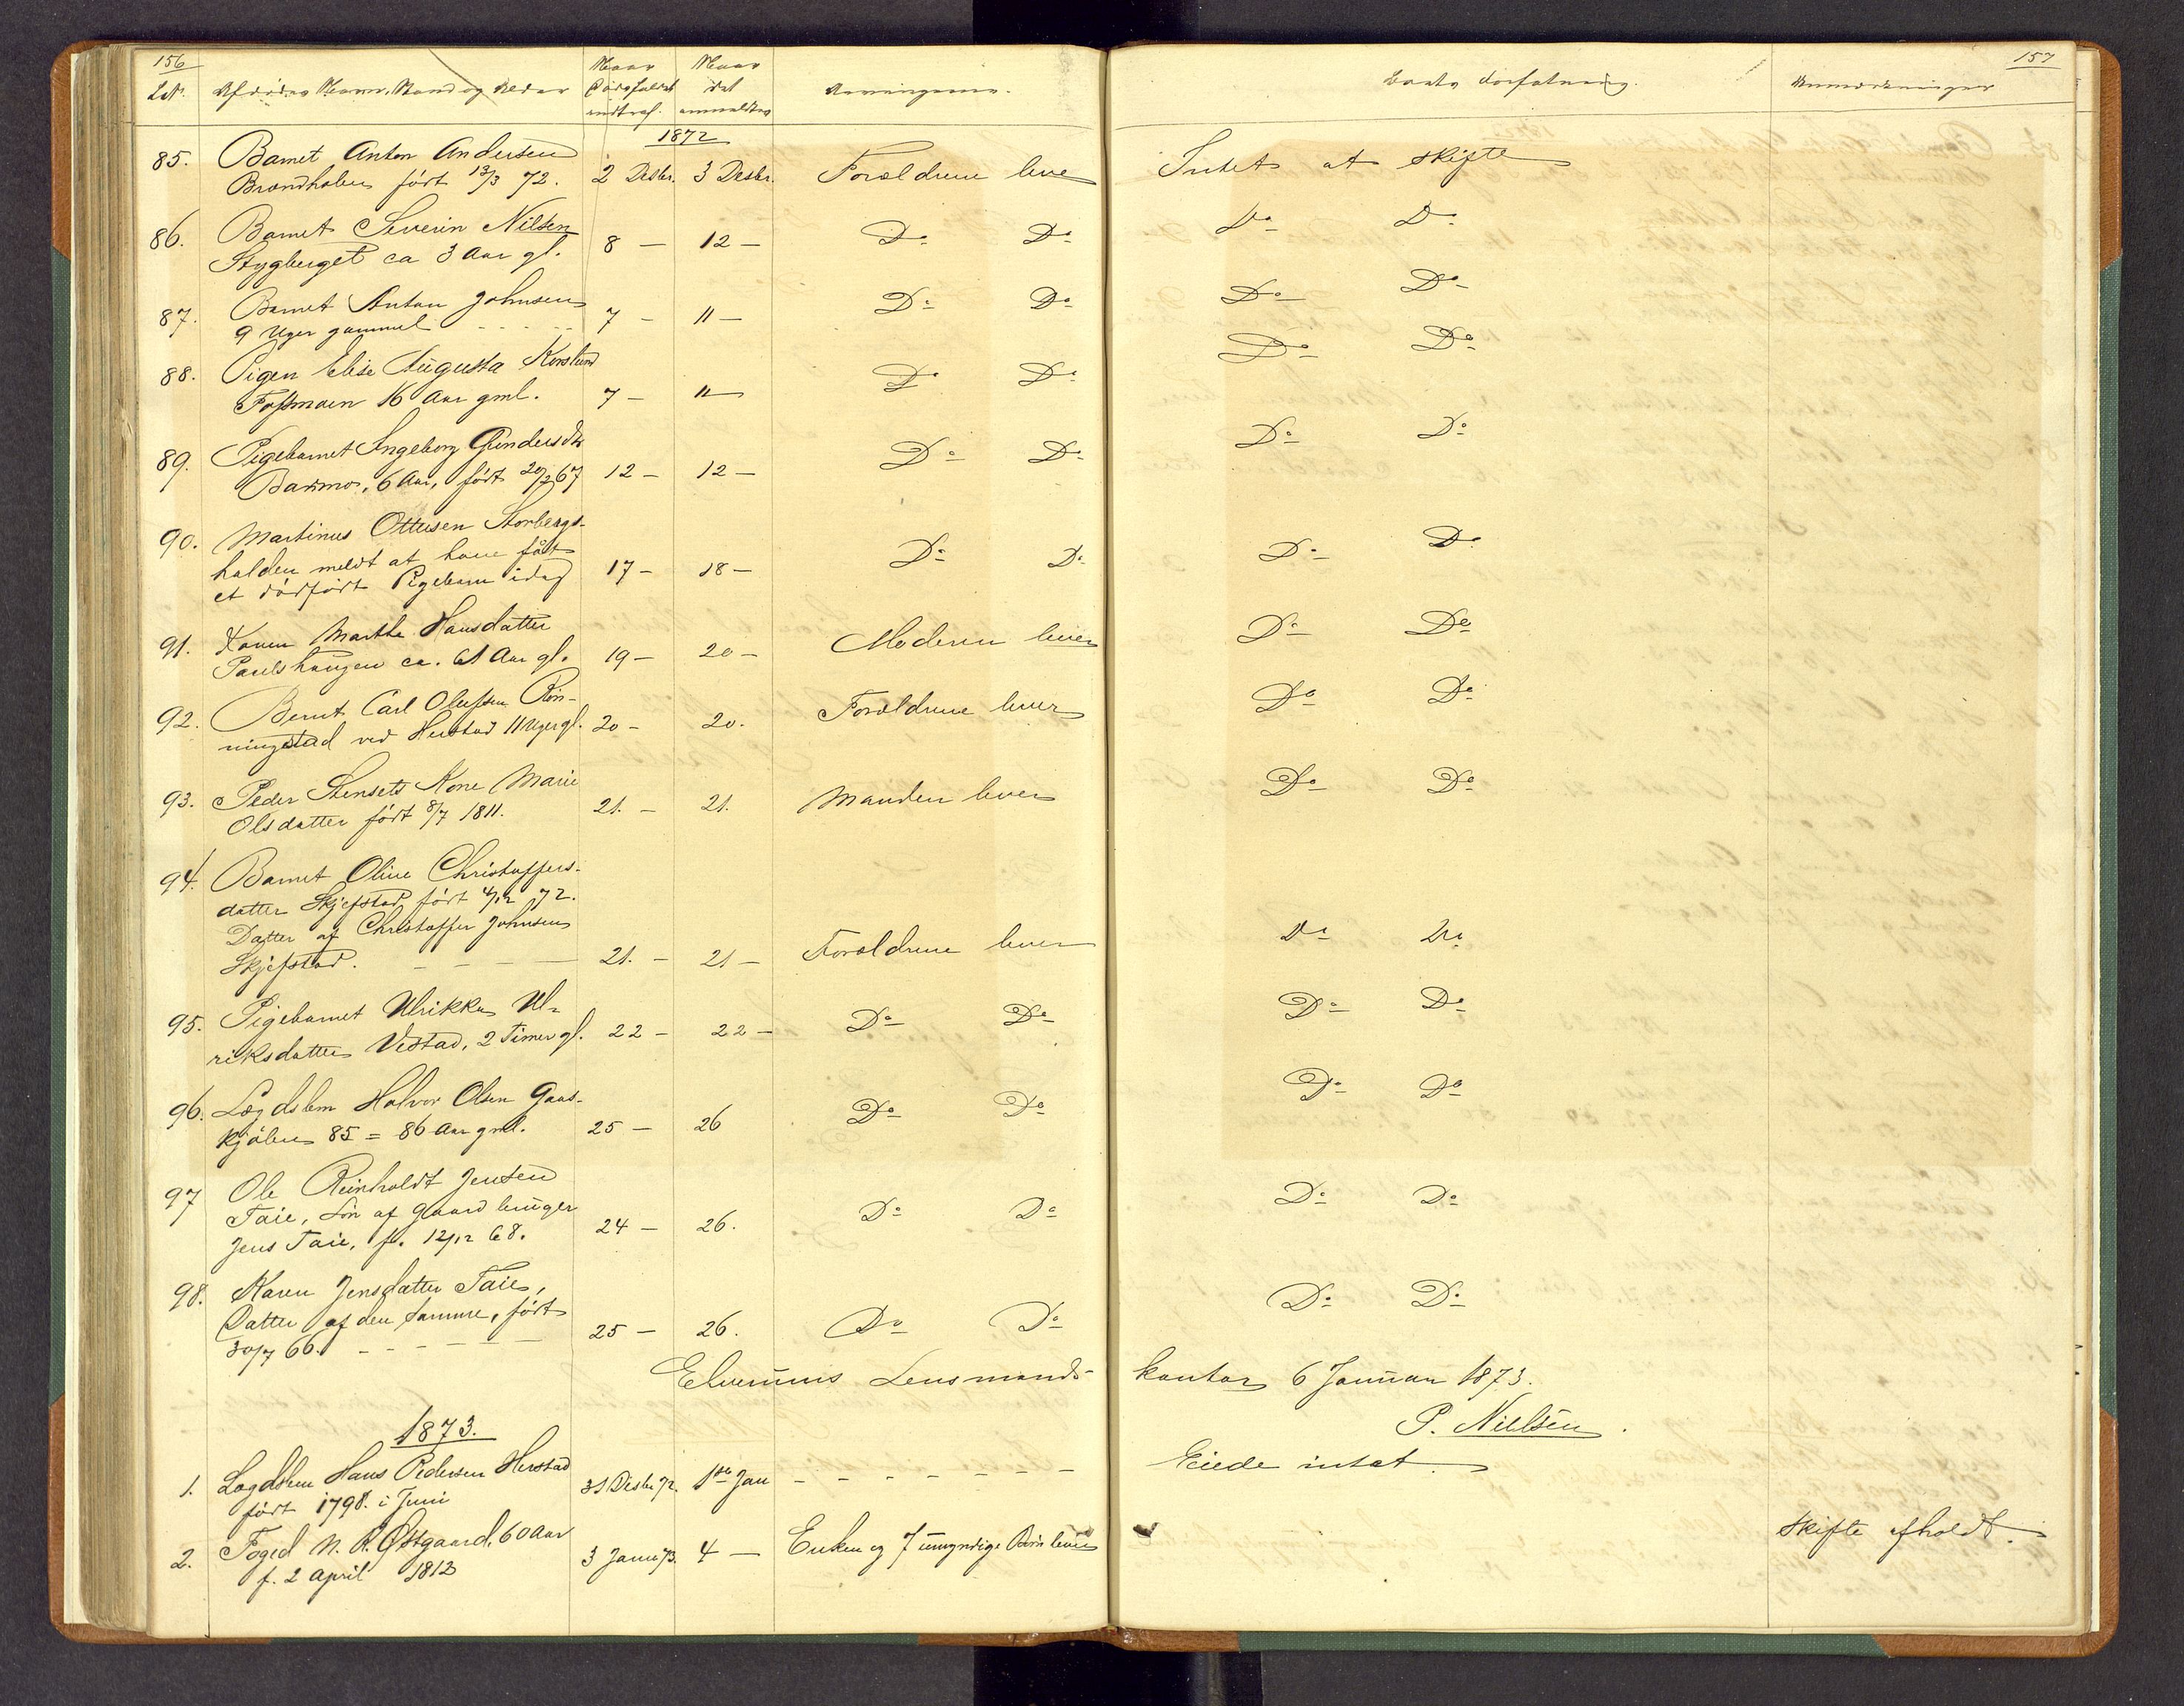 156
157
Lbn. Afdödes Navn, Stand og Alder
Naar Dödsfaldet indtraf.
Naar det anmeldtes
Arvingerne.
Boets Forfatning.
Anmærkninger
1872
85. Barnet Anton Andersen
Brændholen född 13/3 72. 2 Desbr. 3 Desbr. Forældrene leve Intet at skifte
86. Barnet Severin Nilsen
Stygberget ca 3 Aar gl. 8 — 12 — Do Do Do Do
87. Barnet Anton Johnsen
9 Uger gammel - - - - - 7 — 11 — Do Do Do Do
88. Pigen Elise Augusta Korslund
Fossmoen 16 Aar gml. 7 — 11 — Do Do Do Do
89. Pigebarnet Ingeborg Gundersdtr
Barmoe, 6 Aar, født 20/2 67 12 — 12 — Do Do Do Do
90. Martinus Ottersen Storbergs-
halden meldt at have fåt
et dødfødt Pigebarn idag 17 — 18 — Do Do Do Do
91. Karen Marthe Hansdatter
Paulshaugen ca. 61 Aar gl. 19 — 20 — Moderen lever Do Do
92. Bernt Carl Olufsen Røn-
ningstad ved Herstad 11 Uger gl. 20 — 20. Forældrene lever Do Do
93. Peder Stensets Kone Marie
Olsdatter født 8/7 1811. 21. — 21. Manden lever Do Do
94. Barnet Oline Christoffers-
datter Skjefstad født 4/12 72.
Datter af Christoffer Johnsen
Skjefstad. — — — 21. — 21 — Forældrene lever Do Do
95. Pigebarnet Ulrikka Ul-
riksdatter Vestad, 2 Timer gl. 22 — 22 — Do Do Do Do
96. Lægdslem Halvor Olsen Gaas-
kjølen 85 = 86 Aar gml. 25 — 26 Do Do Do Do
97 Ole Reinholdt Jensen
Taie, Søn af Gaardbruger
Jens Taie, f. 12/12 68. 24 — 26. Do Do Do Do
98. Karen Jensdatter Taie,
Datter af den samme, født
30/7 66. — — — — — 25 — 26. Do Do Do Do
Elverums Lensmands-kontor 6 Januar 1873.
P. Nielsen.
1873.
1. Lægdslem Hans Pedersen Herstad
født 1798. i Juni 31 Desbr 72. 1ste Jan - - - - - - - Eiede intet.
2. Foged N. R. Østgaard, 60 Aar
f. 2 April 1812 3 Januar 73. 4 — Enken og 7 umyndige Børn lever Skifte afholdt.